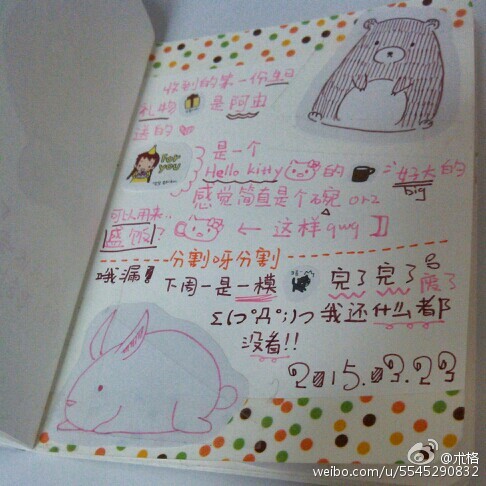 收到的第一份生日
礼物 是阿由
送的
for you
是一个
Hello kitty 的 好大的
big
感觉简直是个碗 orz
可以用来..
盛饭? ← 这样qwq
分割呀分割
哦漏! 下周一是一模 完了完了
Σ(っ°Д°;)っ 我还什么都
没看!!
2015.03.23
@术格
weibo.com/u/5545290832